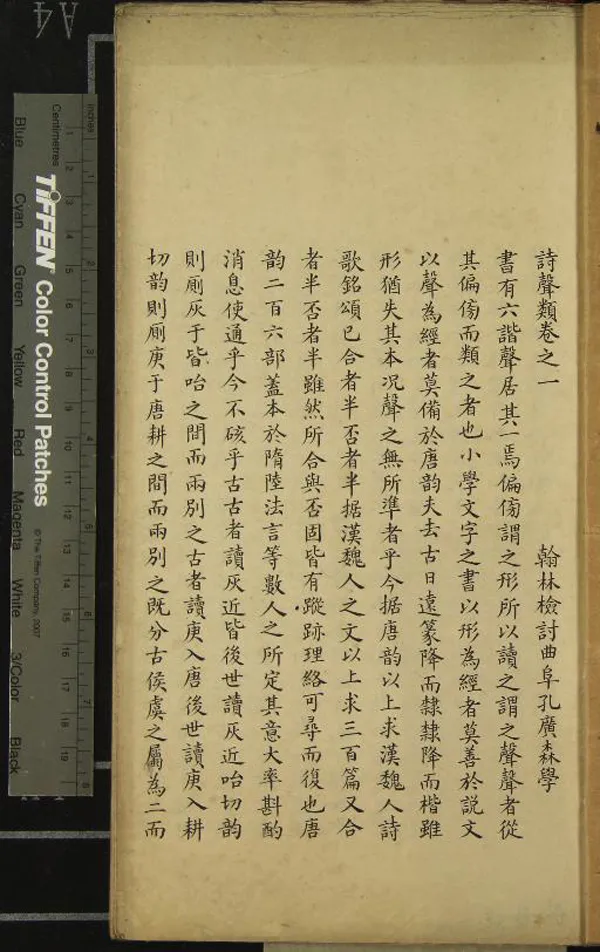 詩聲類卷之一 翰林檢討曲阜孔廣森學
書有六諧聲居其一焉偏傍謂之形所以讀之謂之聲聲者從
其偏傍而類之者也小學文字之書以形為經者莫善於説文
以聲為經者莫備於唐韵夫去古日遠篆降而隸隸降而楷雖
形猶失其本况聲之無所準者乎今据唐韵以上求漢魏人詩
歌銘頌已合者半否者半据漢魏人之文以上求三百篇又合
者半否者半雖然所合與否固皆有蹤跡理絡可尋而復也唐
韵二百六部蓋本於隋陸法言等數人之所定其意大率斟酌
消息使通乎今不硋乎古古者讀灰近皆後世讀灰近咍切韵
則廁灰于皆咍之間而兩別之古者讀庚入唐後世讀庚入耕
切韵則廁庚于唐耕之間而兩別之既分古侯虞之屬為二而
A4
inches
Centimetres
TIFFEN Color Control Patches
© The Tiffen Company, 2007
Blue Cyan Green Yellow Red Magenta White 3/Color Black
1 2 3 4 5 6 7 8
1 2 3 4 5 6 7 8 9 10 11 12 13 14 15 16 17 18 19